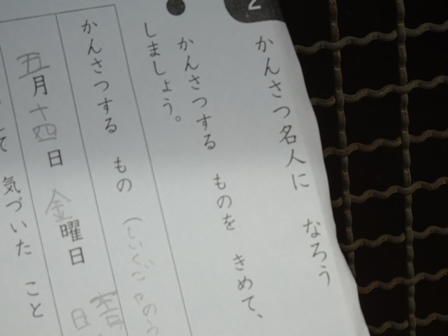 2
かんさつ名人に なろう
かんさつする ものを きめて、
しましょう。
かんさつする もの
五月十四日 金曜日
気づいた こと